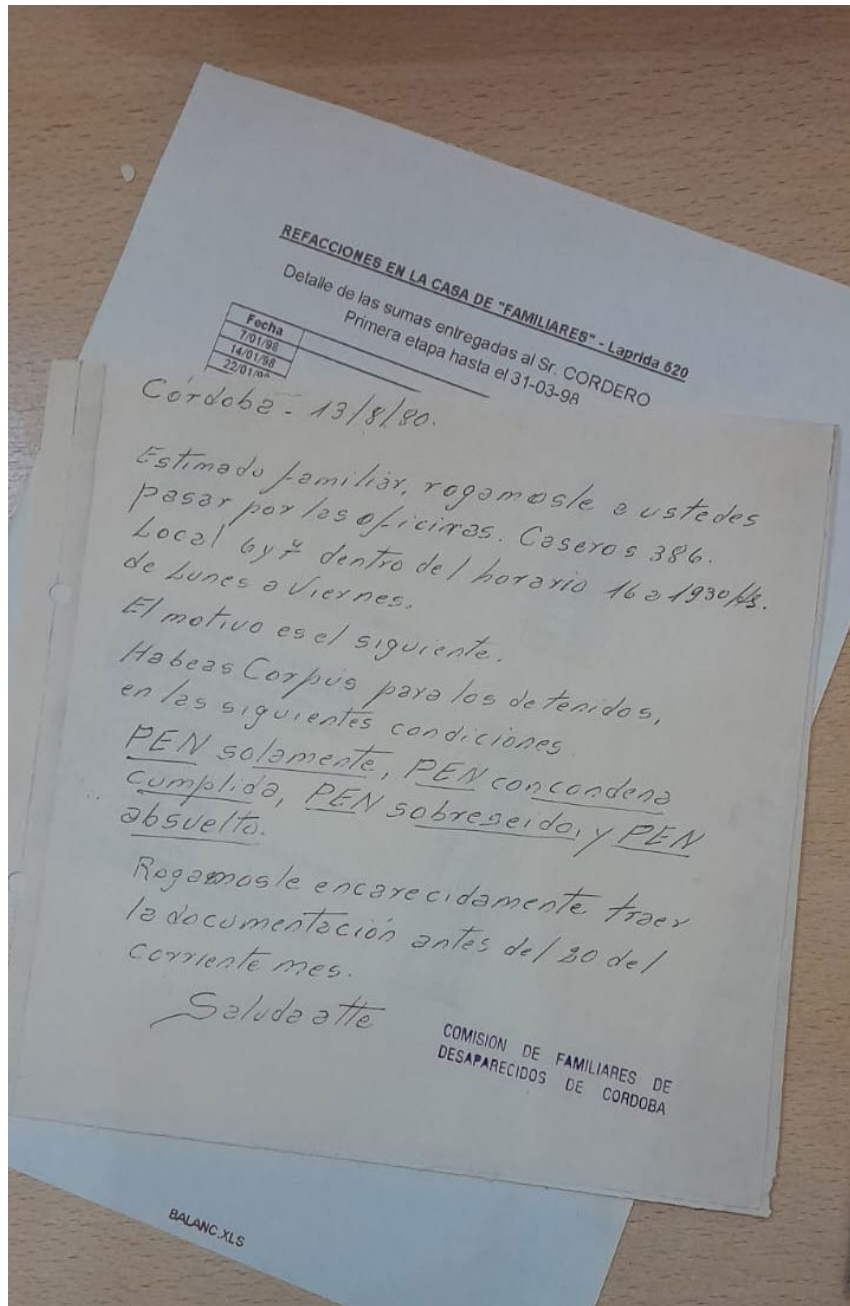 REFACCIONES EN LA CASA DE "FAMILIARES" - Laprida 520
Detalle de las sumas entregadas al Sr. CORDERO
Primera etapa hasta el 31-03-98
Fecha
7/01/98
14/01/98
22/01/98
Córdoba - 13/8/80.
Estimado familiar, rogamosle a ustedes
pasar por las oficinas. Caseros 386.
Local 6 y 7 dentro del horario 16 a 1930 Hs.
de Lunes a Viernes.
El motivo es el siguiente.
Habeas Corpus para los detenidos,
en las siguientes condiciones
PEN solamente, PEN con condena
cumplida, PEN sobreseido, y PEN
absuelto.
Rogamosle encarecidamente traer
la documentación antes del 20 del
corriente mes.
Saluda atte
COMISION DE FAMILIARES DE
DESAPARECIDOS DE CORDOBA
BALANC.XLS